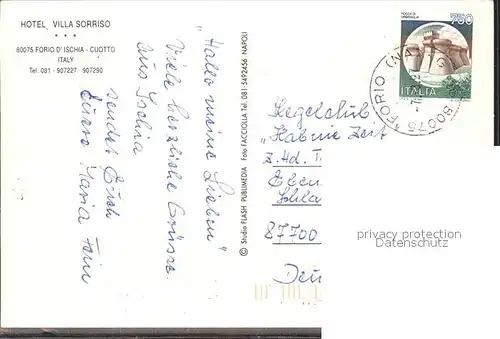 HOTEL VILLA SORRISO
* * *
80075 FORIO D'ISCHIA - CUOTTO
ITALY
Tel. 081 - 907227 907290
"Hallo meine Lieben"
Viele herzliche Grüsse
aus Ischia
sendet Euch
Eure Maria
© Studio FLASH PUBLIMEDIA Foto FACCIOLLA Tel. 081-3492456 NAPOLI
750
ITALIA
80075 FORIO (NA)
Kegelclub
"Habme Zeit
z. Hd. T
Eben
87700
Deu
privacy protection
Datenschutz